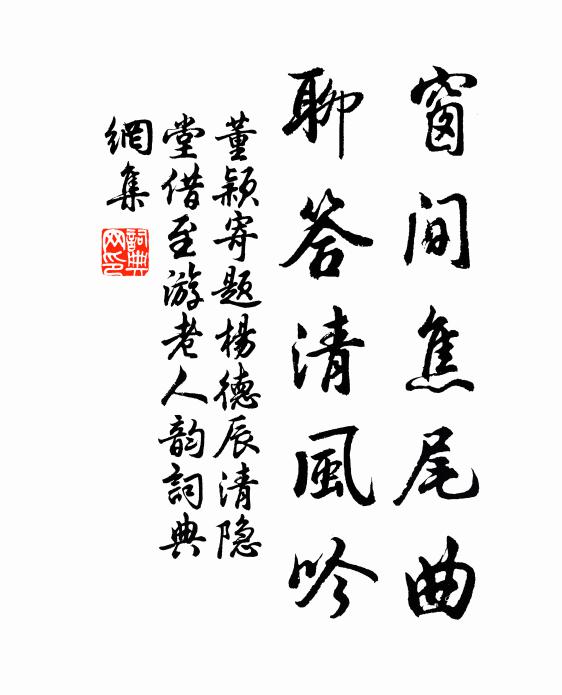 窗间焦尾曲
聊答清風吟
董颖寄题楊德辰清隐
堂借至游老人韵詞典
網集
詞典
网印